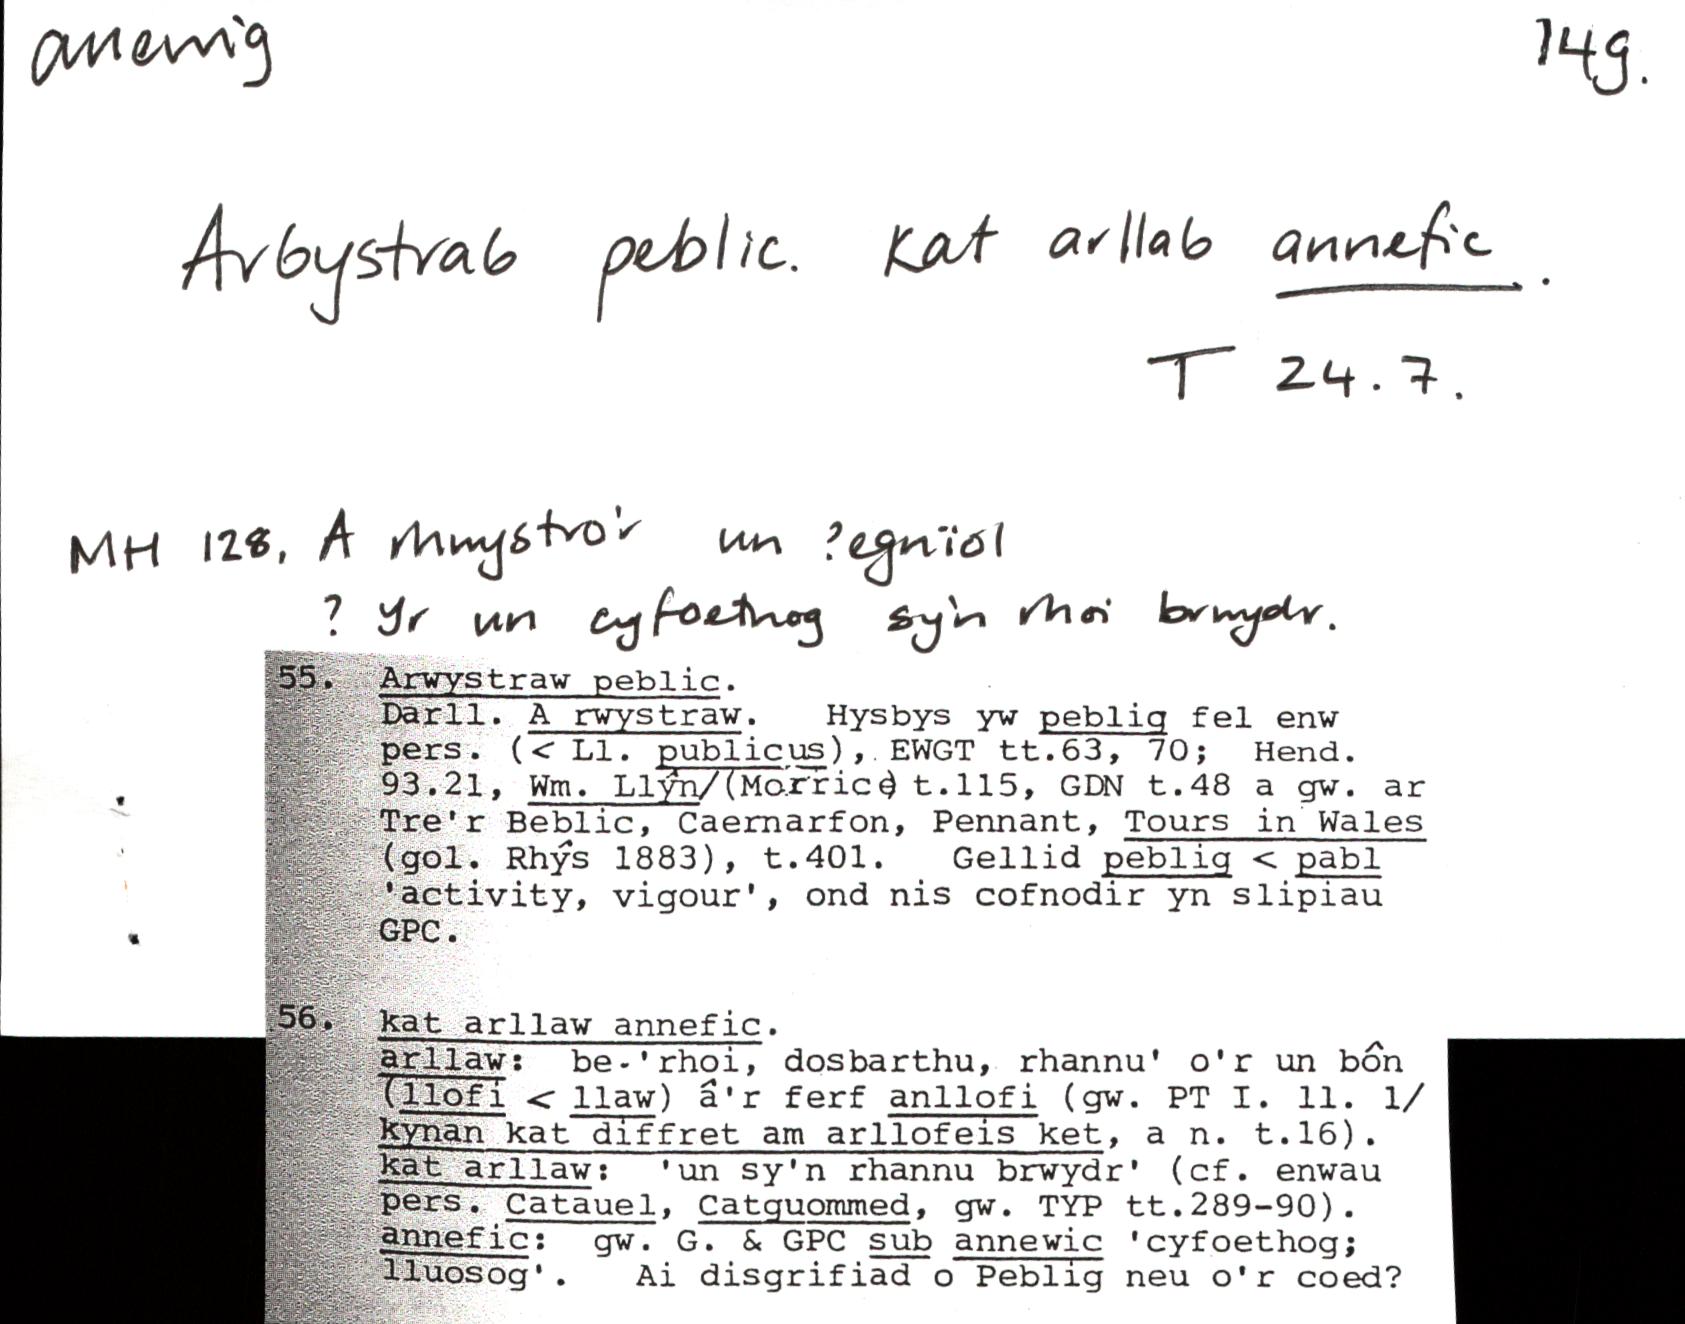 anewig 14g.
Arỽystraỽ peblic. Kat arllaỽ annefic.
T 24.7.
MH 128. A rhwystro'r un ?egnïol
? Yr un cyfoethog sy'n rhoi brwydr.
55. Arwystraw peblic.
Darll. A rwystraw. Hysbys yw peblig fel enw
pers. (< Ll. publicus), EWGT tt.63, 70; Hend.
93.21, Wm. Llŷn/(Morrice) t.115, GDN t.48 a gw. ar
Tre'r Beblic, Caernarfon, Pennant, Tours in Wales
(gol. Rhŷs 1883), t.401. Gellid peblig < pabl
'activity, vigour', ond nis cofnodir yn slipiau
GPC.
56. kat arllaw annefic.
arllaw: be-'rhoi, dosbarthu, rhannu' o'r un bôn
(llofi < llaw) â'r ferf anllofi (gw. PT I. ll. 1/
kynan kat diffret am arllofeis ket, a n. t.16).
kat arllaw: 'un sy'n rhannu brwydr' (cf. enwau
pers. Catauel, Catguommed, gw. TYP tt.289-90).
annefic: gw. G. & GPC sub annewic 'cyfoethog;
lluosog'. Ai disgrifiad o Peblig neu o'r coed?